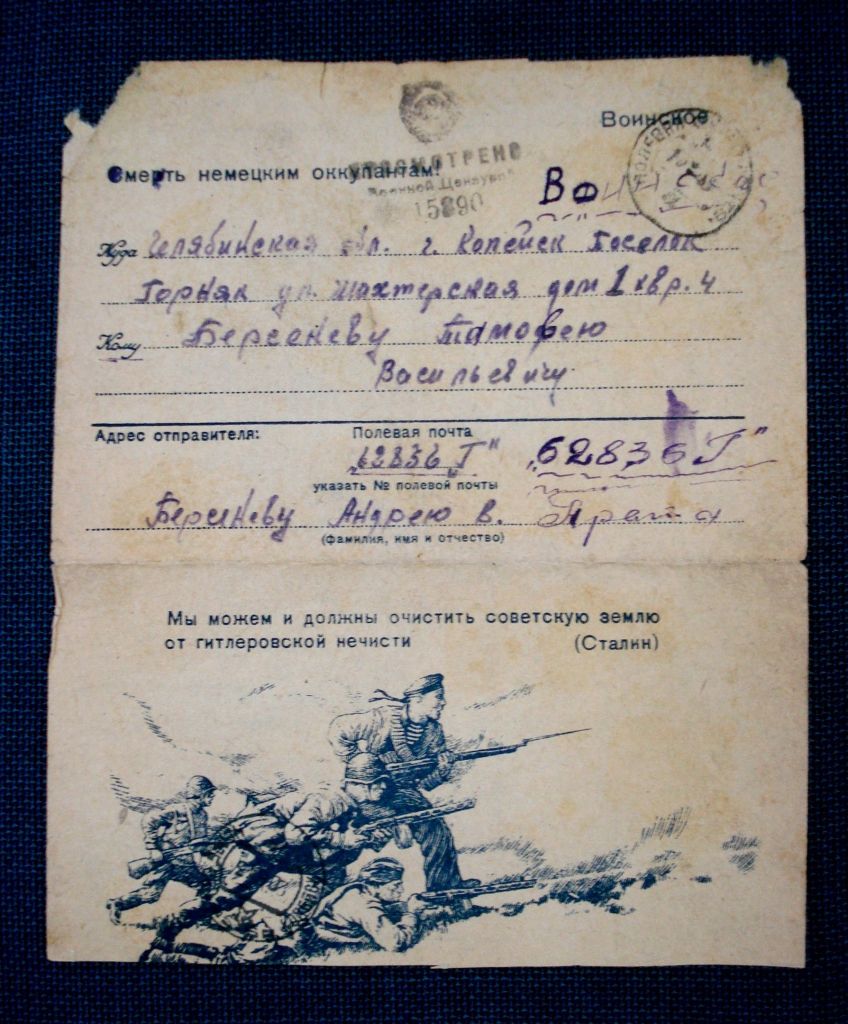 Воинское
Смерть немецким оккупантам!
ПРОСМОТРЕНО
Военной Цензурой
15890
Куда Челябинская обл. г. Копейск Поселок
Горняк ул. Шахтерская дом 1 квр. 4
Кому Берсеневу Тимофею
Васильевичу
Адрес отправителя:
Полевая почта
„62836 Г" „62836 Г"
указать № полевой почты
Берсеневу Андрею В.
(фамилия, имя и отчество)
Мы можем и должны очистить советскую землю
от гитлеровской нечисти (Сталин)